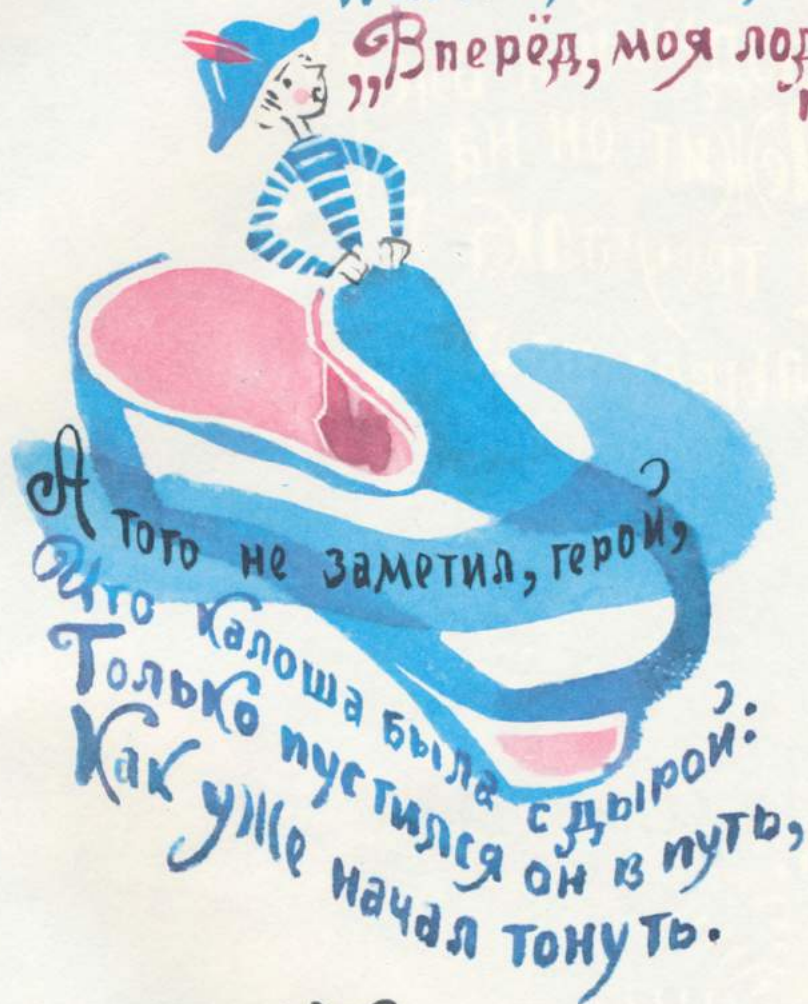 „Вперёд, моя
А того не заметил, герой,
Что калоша была с дырой:
Только пустился он в путь,
Как уже начал тонуть.